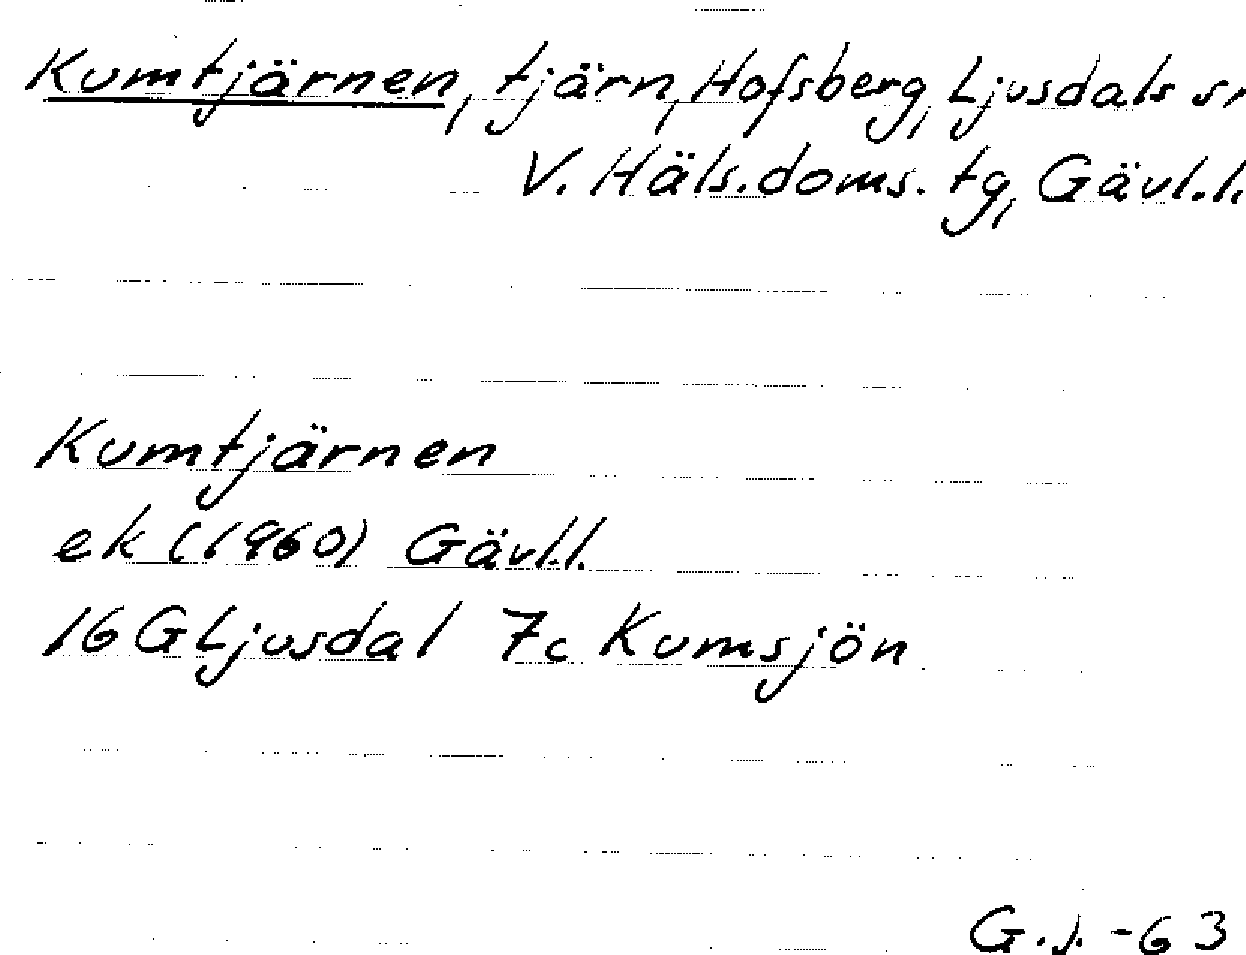 Kumtjärnen, tjärn, Hofsberg, Ljusdals sn
V. Häls. doms. tg, Gävl. l.
Kumtjärnen
ek (1960) Gävl. l.
16 G Ljusdal 7c Kumsjön
G. J. -63